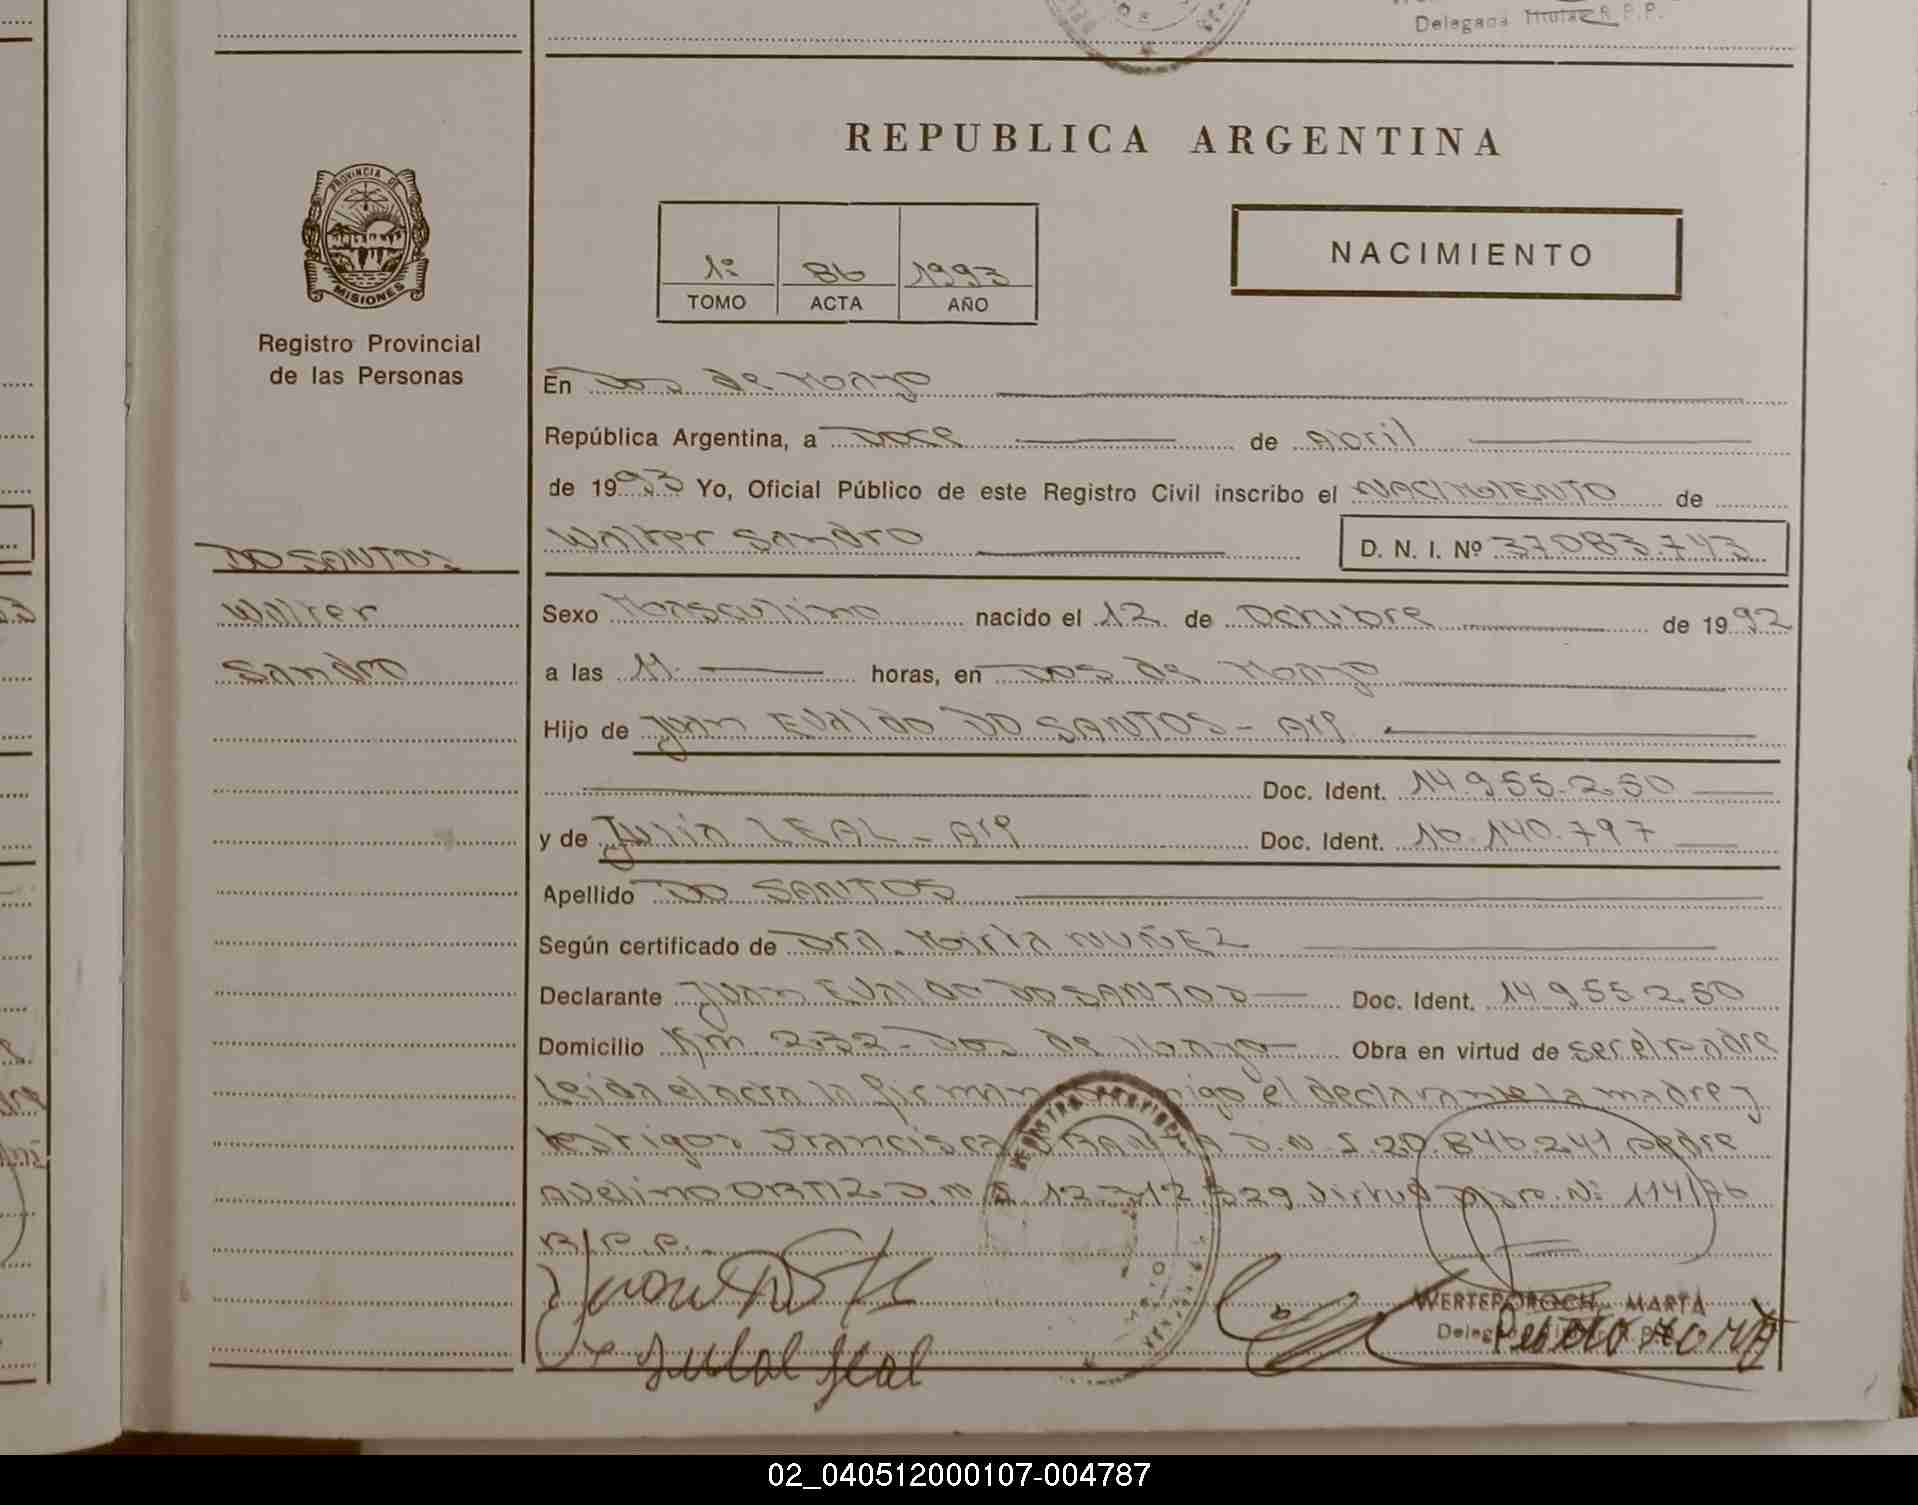 Delegada Titular R.P.P.
REPUBLICA ARGENTINA
PROVINCIA DE
MISIONES
Registro Provincial
de las Personas
1º 86 1993
TOMO ACTA AÑO
NACIMIENTO
En Dos de Mayo
República Argentina, a Doce de Abril
de 1993 Yo, Oficial Público de este Registro Civil inscribo el NACIMIENTO de
Walter Sandro D. N. I. Nº 37.083.743
DO SANTOS
Walter
Sandro
Sexo Masculino nacido el 12 de Octubre de 1992
a las 11 horas, en Dos de Mayo
Hijo de Juan Evaldo DO SANTOS - Arg
Doc. Ident. 14.955.250
y de Julia LEAL - Arg Doc. Ident. 16.140.797
Apellido DO SANTOS
Según certificado de Dra. Mirta NUÑEZ
Declarante Juan Evaldo DO SANTOS Doc. Ident. 14.955.250
Domicilio Km 232 - Dos de Mayo Obra en virtud de ser el padre
Leida el acta la firman conmigo el declarante la madre y
testigos Francisca D.N.I. 20.846.241 Pedro
Avelino ORTIZ D.N.I. 12.712.329 Virtud Nº 114/76
R.P.P.
WERTEPOROCH, MARTA
Julia leal
02_040512000107-004787